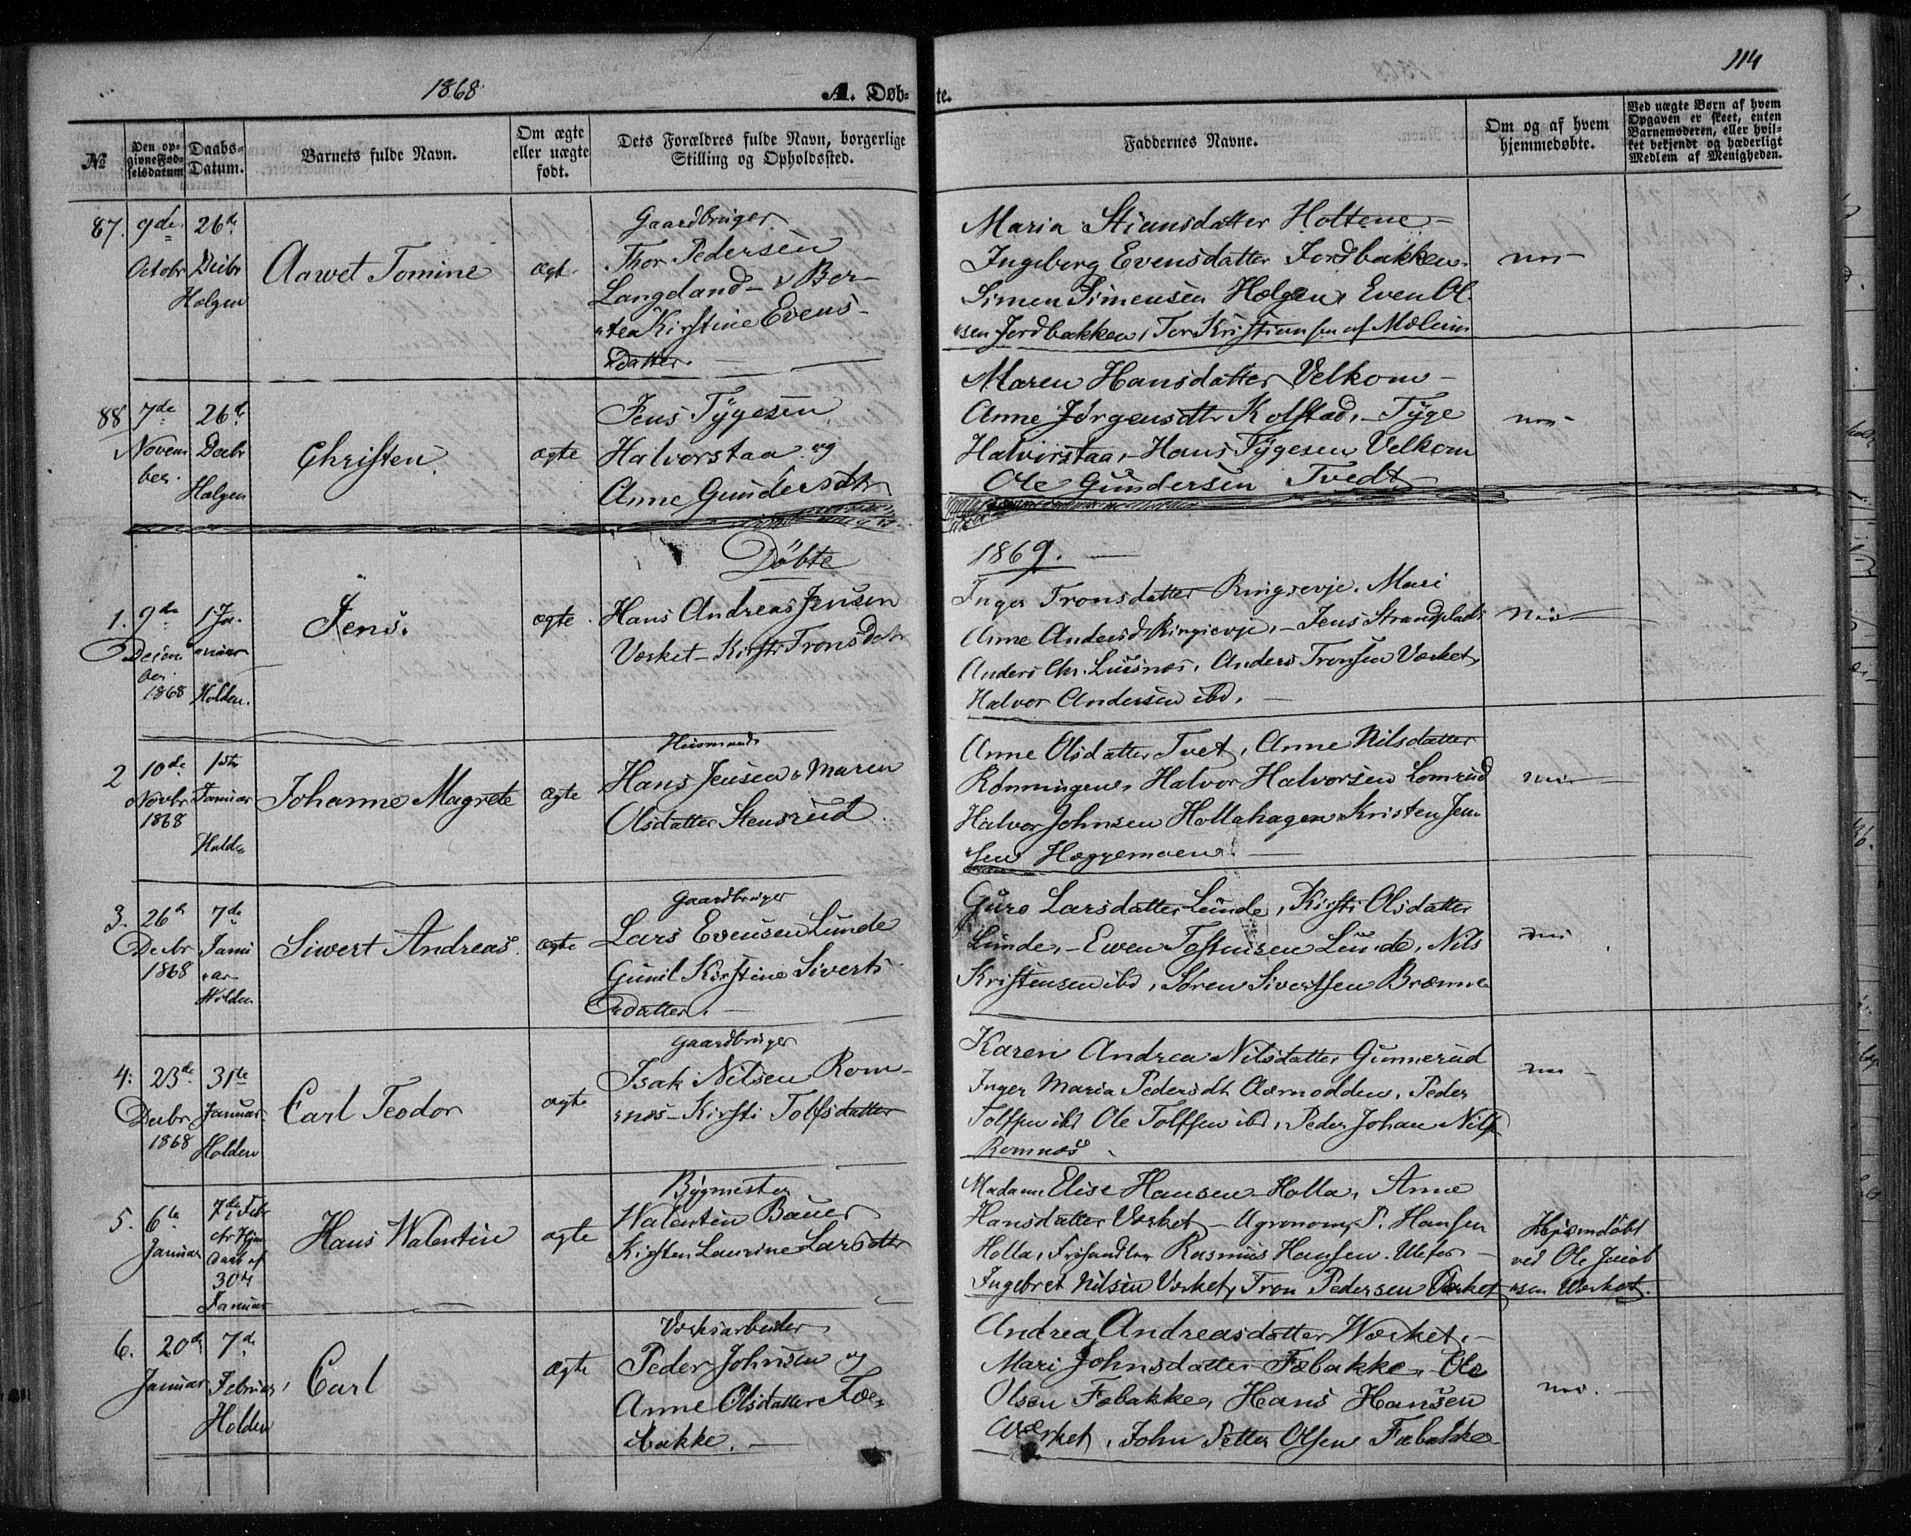 1868
A. Døbte.
114
No
Den opgivne Fødselsdatum
Daabs-Datum.
Barnets fulde Navn.
Om ægte eller uægte født.
Dets Forældres fulde Navn, borgerlige Stilling og Opholdssted.
Faddernes Navne.
Om og af hvem hjemmedøbte.
Ved uægte Børn af hvem Opgaven er skeet, enten Barnemoderen, eller hvilket bekjendt og hæderligt Medlem af Menigheden.
87. 9de Octobr
26de Decbr Helgen
Aawet Tomine
ægt.
Gaardbruger
Thor Pedersen
Langeland - & Ber-
tea Kirstine Evens-
datter.
Maria Stiansdatter Holtene -
Ingeborg Evensdatter Jordbakken.
Simen Simensen Helgen, Even Ol-
sen Jordbakken, Tor Kristiansen af Mælum
88 7de November.
26de Decbr Helgen
Christen
ægte
Jens Tygesen
Halvorstaa og
Anne Gundersdtr
Maren Hansdatter Velkom -
Anne Jørgensdtr Kolstad, - Tyge
Halvorstaa, - Hans Tygesen Velkom
Ole Gundersen Tvedt
Döbte
1869.
1. 9de December 1868
1 Januar Holden.
Jens.
ægte
Hans Andreas Jensen
Værket - Kirsti Tronsdatr
Inger Tronsdatter Ringsevje. Mari
Anne Andersd Ringsevje, - Jens Strandplads
Anders Chr. Lusnæs, Anders Tronsen Værket,
Halvor Andersen ibd.
2 10de Novbr 1868
1ste Januar Holden
Johanne Magrete
ægte
Husmand
Hans Jensen & Maren
Olsdatter Stensrud
Anne Olsdatter Tvet, Anne Nilsdatter
Rønningen, Halvor Halvorsen Lomrud
Halvor Johnsen Hollahagen, Kristen Jen-
sen Heggemoen.
3. 26de Decbr 1868
7de Januar Holden
Siwert Andreas
ægte
Gaardbruger
Lars Evensen Lunde
Gunil Kirstine Siverts-
datter.
Guro Larsdatter Lunde, Kirsti Olsdatter
Lunde, - Even Tostensen Lunde, Nils
Kristensen ibd, Søren Sivertsen Brænne
4. 23de Decbr 1868
31te Januar Holden
Carl Teodor
ægte
Gaardbruger
Isak Nilsen Rom-
næs - Kirsti Tolfsdatter
Karen Andrea Nilsdatter Gunnerud
Inger Maria Pedersdt Aarnodden, Peder
Tolfsen ibd Ole Tolfsen ibd, Peder Johan Nils
Romnæs
5. 6te Januar
7de Febr
30te
Januar
Hans Walentin
ægte
Bygmester
Walentin Bauer
Kirsten Laurine Larsdtr
Madame Elise Hansen Holla, Anne
Hansdatter Værket - Agronom P. Hansen
Holla, Rasmus Hansen. Ulefos -
Ingebret Nilsen Værket, Tron Pedersen Værket
Hjemdøbt
ved Ole Jacob-
sen Værket.
6. 20de Januar
7de Februar Holden
Carl
ægte
Værksarbeider
Peder Johnsen og
Anne Olsdatter Fæ-
bakke.
Andrea Andreasdatter Værket, -
Mari Johnsdatter Fæbakke, Ole
Olsen Fæbakke, Hans Hansen
Værket, John Petter Olsen Fæbakke